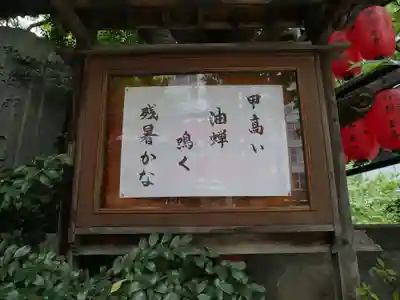 甲高い
油蝉
鳴く
残暑かな